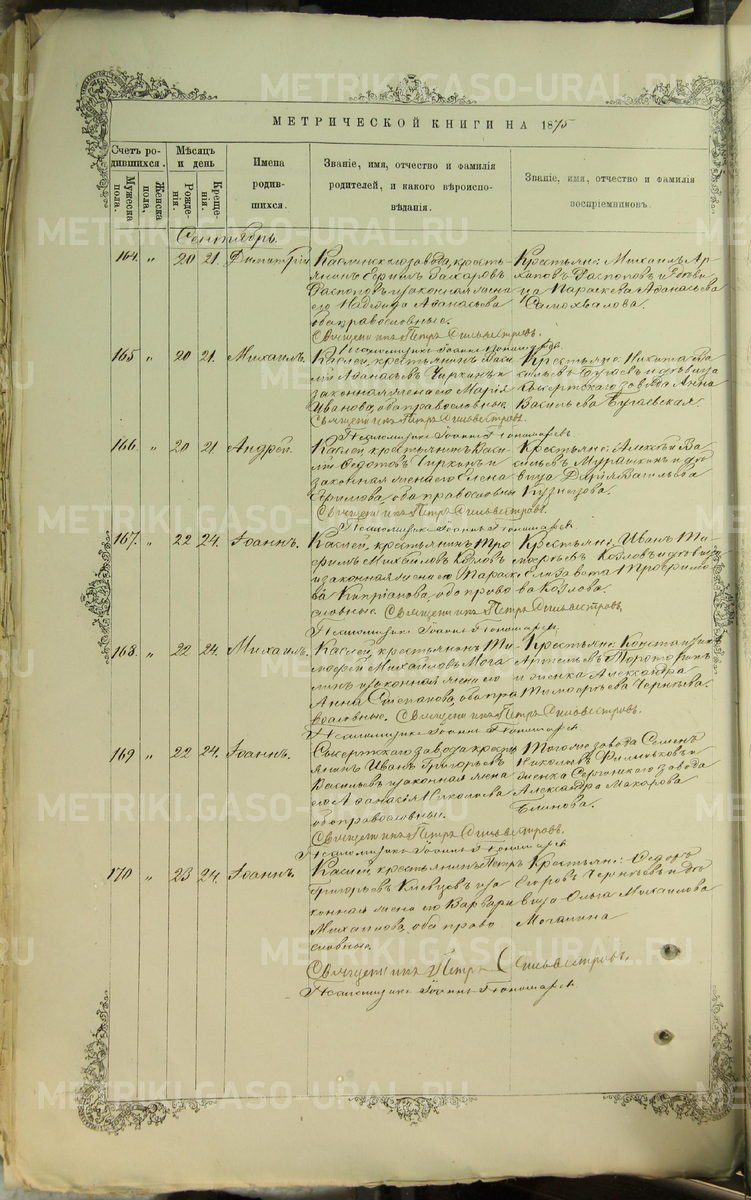 МЕТРИЧЕСКОЙ КНИГИ НА 1875
Счетъ ро-
дившихся.
Мужеска
пола.
Женска
пола,
Мѣсяцъ
и день
Рожде-
нія.
Креще-
нія.
Имена
родив-
шихся.
Званіе, имя, отчество и фамилія
родителей, и какого вѣроиспо-
вѣданія.
Званіе, имя, отчество и фамилія
воспріемниковъ.
Сентябрь.
164. „ 20 21. Димитрій
Каслинскаго завода, кресть-
янинъ Ермилъ Захаровъ
Распоповъ и законная жена
его Надежда Аѳанасьева
оба православные.
Священникъ Петръ Сильвестровъ.
Псаломщикъ Іоаннъ Пономаревъ
Крестьяне: Михаилъ Ар-
хиповъ Распоповъ и дѣви-
ца Параскева Аѳанасьева
Самохвалова.
165 „ 20 21. Михаилъ.
Каслей, крестьянинъ Васи
лій Аѳанасьевъ Чиркинъ и
законная жена его Марія
Иванова, оба православные
Священникъ Петръ Сильвестровъ.
Псаломщикъ Іоаннъ Пономаревъ
Крестьяне: Никита Ва
сильевъ Бугаевъ и дѣвица
Сысертскаго завода Анна
Васильева Бугаевская.
166. „ 20 21 Андрей.
Каслей, крестьянинъ Васи
лій Ѳедотовъ Чиркинъ и
законная жена его Елена
Ефимова, оба православны
Священникъ Петръ Сильвестровъ.
Псаломщикъ Іоаннъ Пономаревъ
Крестьяне: Алексѣй Ва
сильевъ Мурашкинъ и дѣ
вица Дарія Васильева
Кузнецова.
167. „ 22 24. Іоаннъ.
Каслей, крестьянинъ Тро
фимъ Михайловъ Козловъ
и законная жена его Параск
ва Кипріанова, оба право
славные. Священникъ Петръ Сильвестровъ.
Псаломщикъ Іоаннъ Пономаревъ
Крестьяне: Иванъ Ти
мофѣевъ Козловъ и дѣвица
Елизавета Трофимо
ва Козлова.
168. „ 22 24. Михаилъ.
Каслей, крестьянинъ Ти
мофей Михайловъ Мога
и законная жена его
Анна Степанова, оба пра
вославные. Священникъ Петръ Сильвестровъ.
Псаломщикъ Іоаннъ Пономаревъ
Крестьяне: Константинъ
и женка Александра
Тимофѣева Чернѣева.
169 „ 22 24. Іоаннъ.
Сысертскаго завода кресть
янинъ Иванъ Григорьевъ
Васильевъ и законная жена
его Аѳанасія Николаева
оба православные.
Священникъ Петръ Сильвестровъ.
Псаломщикъ Іоаннъ Пономаревъ
Того же завода Семенъ
женка Сергинскаго завода
Александра Макарова
Блинова.
170 „ 23 24. Іоаннъ.
Каслей, крестьянинъ Петръ
Григорьевъ Киевцевъ и за
конная жена его Варвара
Михаилова, оба право
славные.
Священникъ Петръ Сильвестровъ.
Псаломщикъ Іоаннъ Пономаревъ
Крестьяне: Ѳедоръ
Егоровъ Чернѣевъ и дѣ
вица Ольга Михаилова
Могалина
METRIKI.GASO-URAL.RU